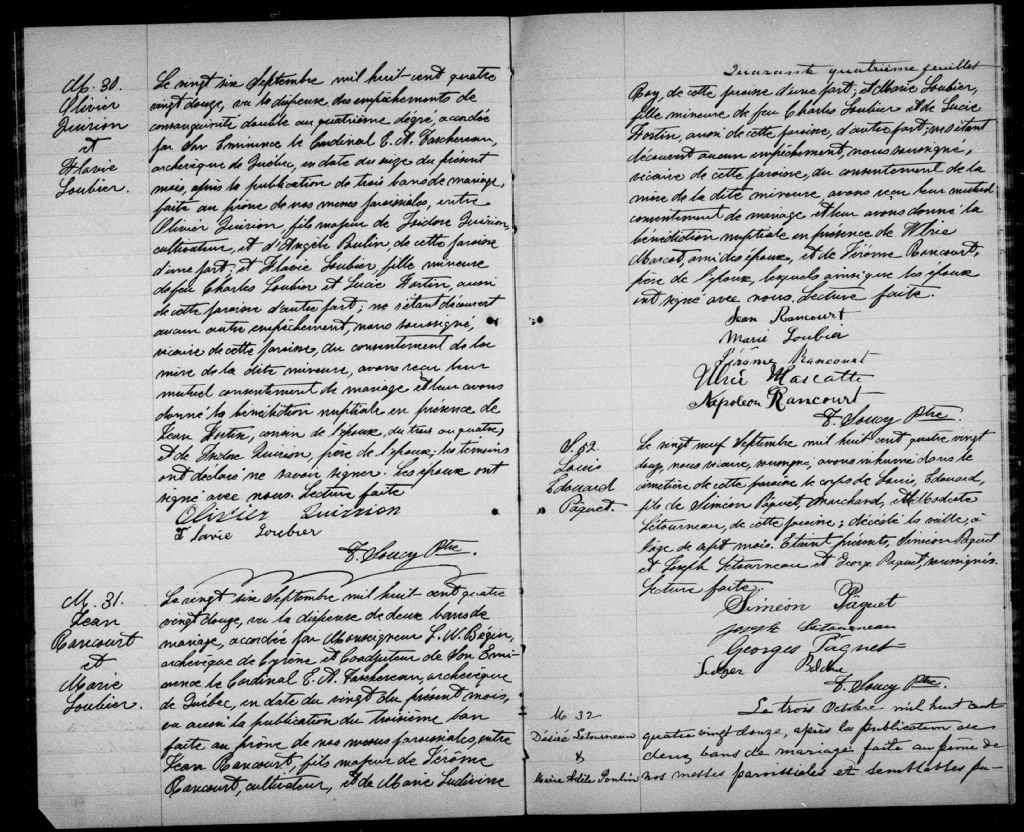 M. 30.
Olivier
Quirion
et
Flavie
Loubier.
Le vingt six Septembre mil huit-cent quatre
vingt douze, vu la dispense des empêchements de
consanguinité double au quatrième degré, accordée
par Son Eminence le Cardinal E. A. Taschereau,
archevêque de Québec, en date du seize du présent
mois, après la publication de trois bans de mariage,
faite au prône de nos messes paroissiales, entre
Olivier Quirion, fils majeur de Isidore Quirion,
cultivateur, et d'Angèle Poulin, de cette paroisse
d'une part; et Flavie Loubier, fille mineure
de feu Charles Loubier et Lucie Fortin, aussi
de cette paroisse d'autre part; ne s'étant découvert
aucun autre empêchement, nous soussigné,
vicaire de cette paroisse, du consentement de la
mère de la dite mineure, avons reçu leur
mutuel consentement de mariage et leur avons
donné la bénédiction nuptiale en présence de
Jean Fortin, cousin de l'époux, du trois au quatre,
et de Isidore Quirion, père de l'époux; les témoins
ont déclaré ne savoir signer. Les époux ont
signé avec nous. Lecture faite
Olivier Quirion
Flavie Loubier
F. Soucy Ptre.
M. 31.
Jean
Rancourt
et
Marie
Loubier.
Le vingt six Septembre mil huit cent quatre
vingt douze, vu la dispense de deux bans de
mariage, accordée par Monseigneur L. N. Bégin,
archevêque de Cyrène et Coadjuteur de Son Emi-
nence le Cardinal E. A. Taschereau, archevêque
de Québec, en date du vingt du présent mois,
vu aussi la publication du troisième ban
faite au prône de nos messes paroissiales, entre
Jean Rancourt, fils majeur de Jérôme
Rancourt, cultivateur, et de Marie Ludivine
Quarante quatrième feuillet
Roy, de cette paroisse d'une part; et Marie Loubier,
fille mineure de feu Charles Loubier et de Lucie
Fortin, aussi de cette paroisse, d'autre part; ne s'étant
découvert aucun empêchement, nous soussigné,
vicaire de cette paroisse, du consentement de la
mère de la dite mineure, avons reçu leur mutuel
consentement de mariage et leur avons donné la
bénédiction nuptiale en présence de Ulric
Mascot, ami des époux, et de Jérôme Rancourt,
père de l'époux, lesquels ainsi que les époux
ont signé avec nous. Lecture faite.
Jean Rancourt
Marie Loubier
Jérôme Rancourt
Ulric Mascatte
Napoleon Rancourt
F. Soucy Ptre.
S. 82
Louis
Edouard
Pâquet.
Le vingt neuf Septembre mil huit cent quatre vingt
douze, nous vicaire, soussigné, avons inhumé dans le
cimetière de cette paroisse le corps de Louis, Edouard,
fils de Siméon Pâquet, Marchand, et Modeste
Létourneau, de cette paroisse; décédé la veille, à
l'âge de sept mois. Etaient présents, Siméon Paquet
et Joseph Létourneau et George Paquet, soussignés.
Lecture faite.
Siméon Pâquet
Joseph Letourneau
Georges Pâquet
F. Soucy Ptre.
M 32
Désiré Létourneau
&
Marie Adèle Poulin
Le trois Octobre mil huit cent
quatre vingt douze, après la publication de
deux bans de mariage faite au prône de
nos messes paroissiales et semblables pu-